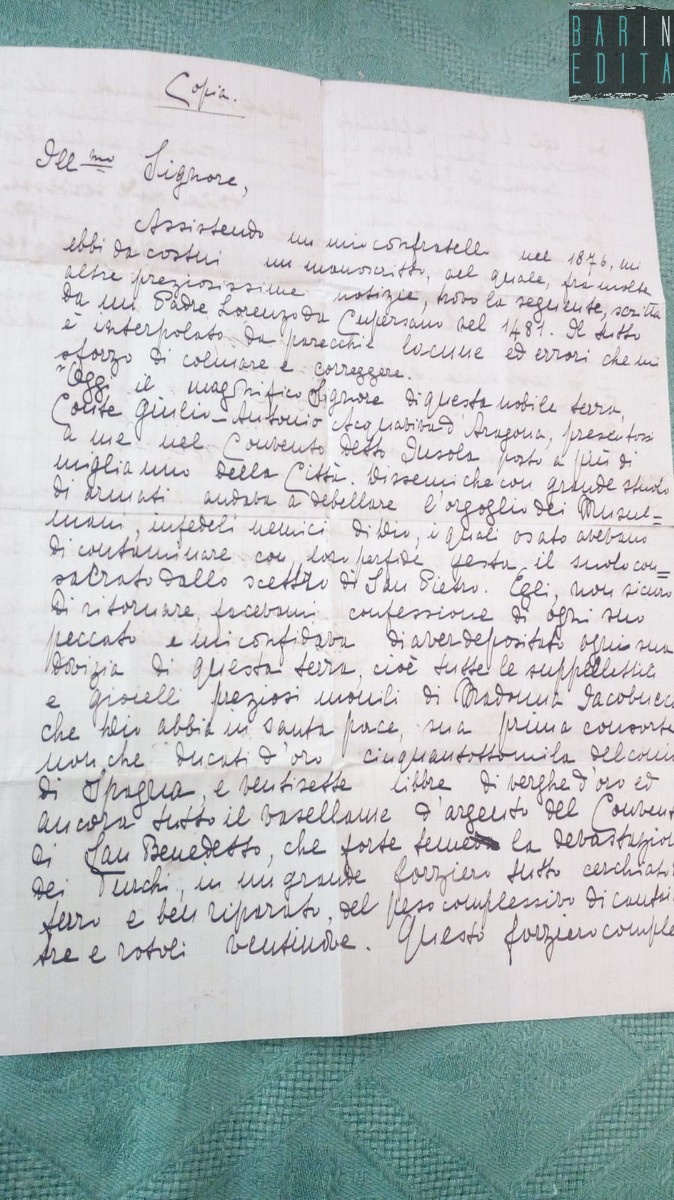 BARIN
EDITA
Copia.
Ill.mo Signore,
Assistendo un mio confratello nel 1876, mi
ebbi da costui un manoscritto, nel quale, fra molte
altre preziosissime notizie, trovo la seguente, scritta
da un Padre Lorenzo da Cupersano nel 1481. Il tutto
è interpolato da parecchie lacune ed errori che mi
sforzo di colmare e correggere.
"Oggi il magnifico Signore di questa nobile terra,
Conte Giulio-Antonio Acquaviva d'Aragona, presentosi
a me nel Convento detto Insola posto a più di
miglia uno della Città. Dissemi che con grande stuolo
di armati andava a debellare l'orgoglio dei Musul=
mani, infedeli nemici di Dio, i quali osato avevano
di contaminare con loro perfide gesta il suolo con=
sacrato dallo scettro di San Pietro. Egli, non sicuro
di ritornare, facevami confessione di ogni suo
peccato e mi confidava di aver depositato ogni sua
dovizia di questa terra, cioè tutte le suppellettili
e gioielli preziosi monili di Madonna Iacobucc
che Iddio abbia in santa pace, sua prima consorte
nonche ducati d'oro cinquantottomila del coni
di Spagna, e ventisette libbre di verghe d'oro ed
ancora tutto il vasellame d'argento del Convent
di San Benedetto, che forte teme la devastazion
dei Turchi, in un grande forziero tutto cerchiato
ferro e ben riparato, del peso complessivo di canta
tre e rotoli ventinove. Questo forziero comple